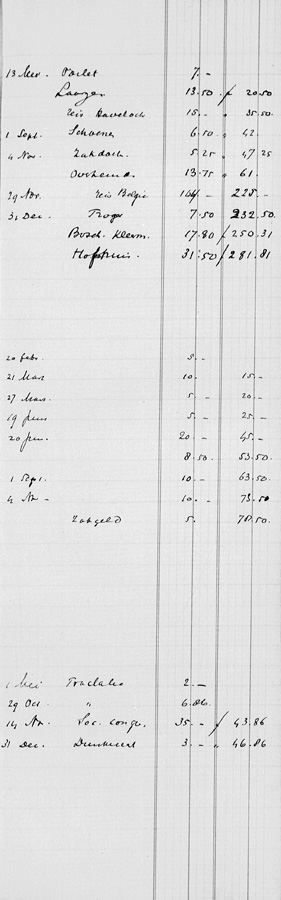 13 Mei. Toilet 7.-
13.50 f 20.50
reis 15.- " 35.50
1 Sept. Schoenen 6.50 " 42.-
4 Nov. Zakdoek. 5.25 " 47.25
Overhemd 13.75 " 61.-
29 Nov. reis Belgie 164.- 225.-
31 Dec. 7.50 232.50.
17.80 f 250.31
31.50 f 281.81
20 Febr. 5.-
21 Maart 10. 15.-
27 Maart. 5.- 20.-
19 Juni 5.- 25.-
20 Juni. 20.- 45.-
8.50. 53.50.
1 Sept. 10.- 63.50.
4 Nov. 10.- 73.50
Zakgeld 5. 78.50.
1 Mei Tractatie 2.-
29 Oct. " 6.86.
14 Nov. Soc. congr. 35.- f 43.86
31 Dec. 3.- " 46.86